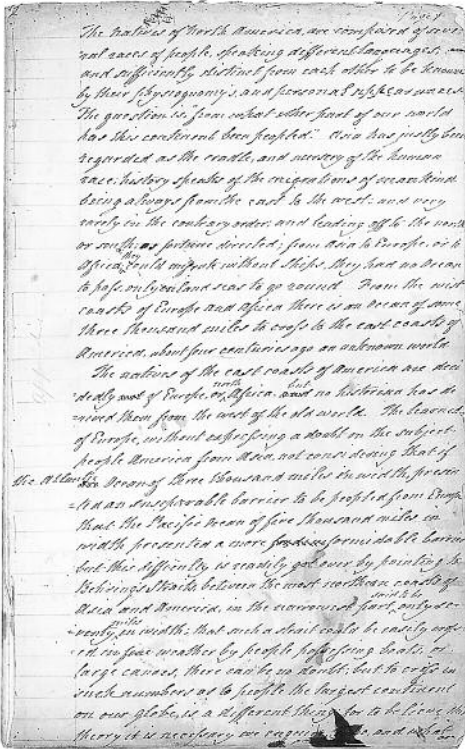 Page 1
The Natives of North America, are composed of seve-
ral races of people, speaking different languages,
and sufficiently distinct from each other to be known
by their physiognomy's, and personal appearances.
The question is, from what other part of our world
has this continent been peopled." Asia has justly been
regarded as the cradle, and nursery of the human
race; history speaks of the migrations of mankind
being always from the east to the west: and very
rarely in the contrary order; and leading off to the north
or south; as fortune directed; from Asia to Europe, or to
Africa, they could migrate without Ships, they had no Ocean
to pass, only inland seas to go round. From the mid
coasts of Europe and Africa there is an Ocean of some
three thousand miles to cross to the east coasts of
America, about four centuries ago an unknown world
The natives of the east coasts of America are deci
dedly not of Europe, or north Africa. but no historian has de
rived them from the west of the old world. The learned
of Europe, without expressing a doubt on the subject
people America from Asia, not considering that if
the Atlantic Ocean of three thousand miles in width, presen
ted an insuperable barrier to be peopled from Europe
that the Pacific Ocean of five thousand miles in
width presented a more formidable barrier
but this difficulty is readily got over by pointing to
Behring's Straits, between the most northern coasts of
Asia and America, in the narrowest part, said to be only se-
venty miles in width; that such a strait could be easily cross
ed in fine weather by people possessing boats, or
large canoes, there can be no doubt; but to cross in
such numbers as to people the largest continent
on our globe, is a different thing for to believe this
theory it is necessary we and what